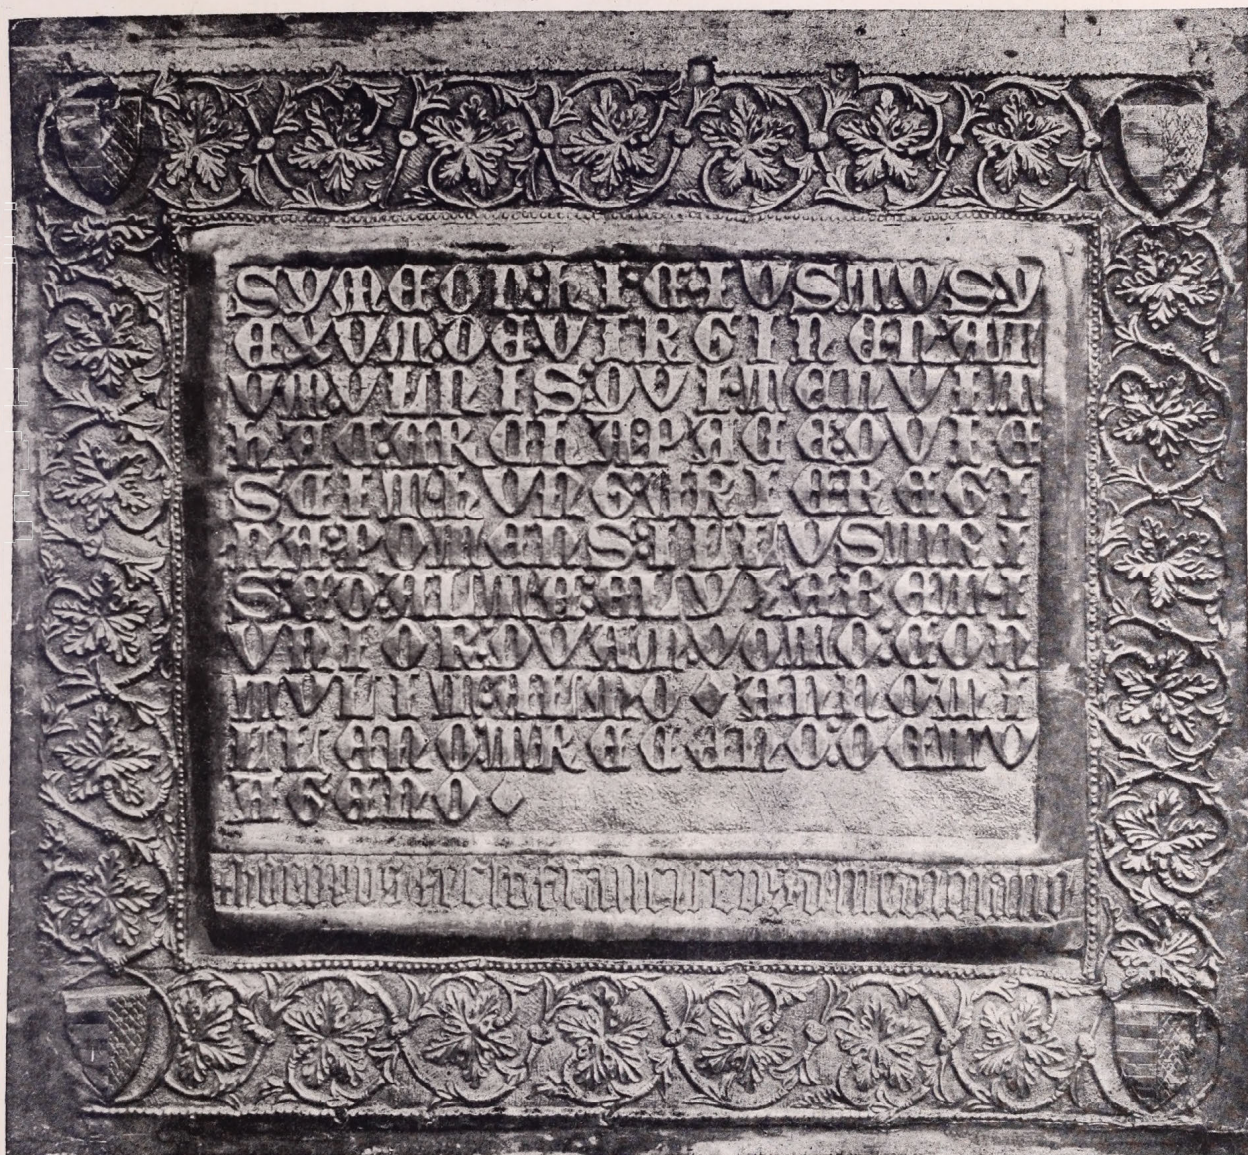 SYMEON:HIC·IVSTVS·Y
EXVM·DE VIRGINE NAT
VM·VLNIS QVI·TENVIT
HAC·ARCHA PACE QVIE
SCIT·HVNGARIE REGI
NA·POTENS:ILLVSTRI
S·ED·ALTA:ELYXABET·I
VNIOR·QVAM·VOTO·CON
TVLIT·ALMO ANNO·MI
LLENO·TRECENO:OCTV
AGENO
hoc opus fecit franciscus de mediolano